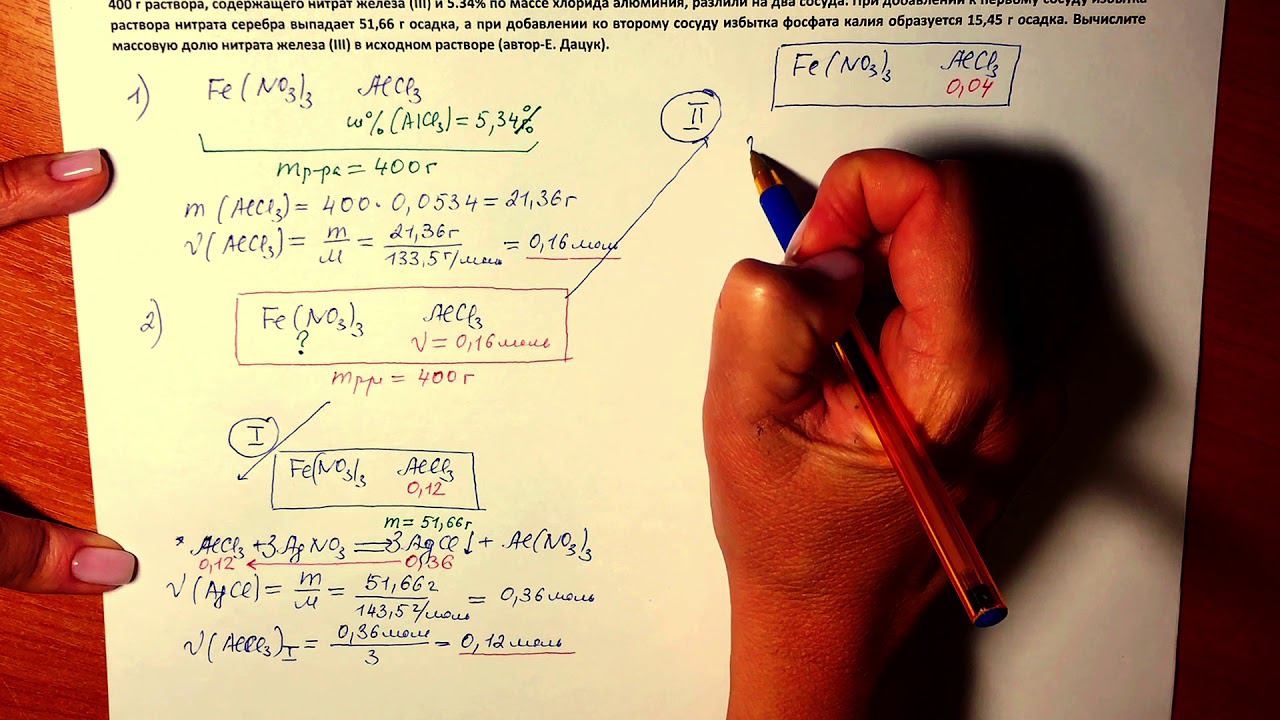 400 г раствора, содержащего нитрат железа (III) и 5.34% по массе хлорида алюминия, разлили на два сосуда. При добавлении к первому сосуду избытка
раствора нитрата серебра выпадает 51,66 г осадка, а при добавлении ко второму сосуду избытка фосфата калия образуется 15,45 г осадка. Вычислите
массовую долю нитрата железа (III) в исходном растворе (автор-Е. Дацук).
1) Fe(NO₃)₃ AlCl₃
ω%(AlCl₃) = 5,34%
mр-ра = 400г
m(AlCl₃) = 400·0,0534 = 21,36г
ν(AlCl₃) = m/M = 21,36г/133,5г/моль = 0,16моль
2) Fe(NO₃)₃ AlCl₃
? ν = 0,16моль
mрра = 400г
I
Fe(NO₃)₃ AlCl₃
0,12
m = 51,66г
* AlCl₃ + 3AgNO₃ = 3AgCl↓ + Al(NO₃)₃
0,12 ← 0,36
ν(AgCl) = m/M = 51,66г/143,5г/моль = 0,36моль
ν(AlCl₃)I = 0,36моль/3 = 0,12моль
II
Fe(NO₃)₃ AlCl₃
0,04